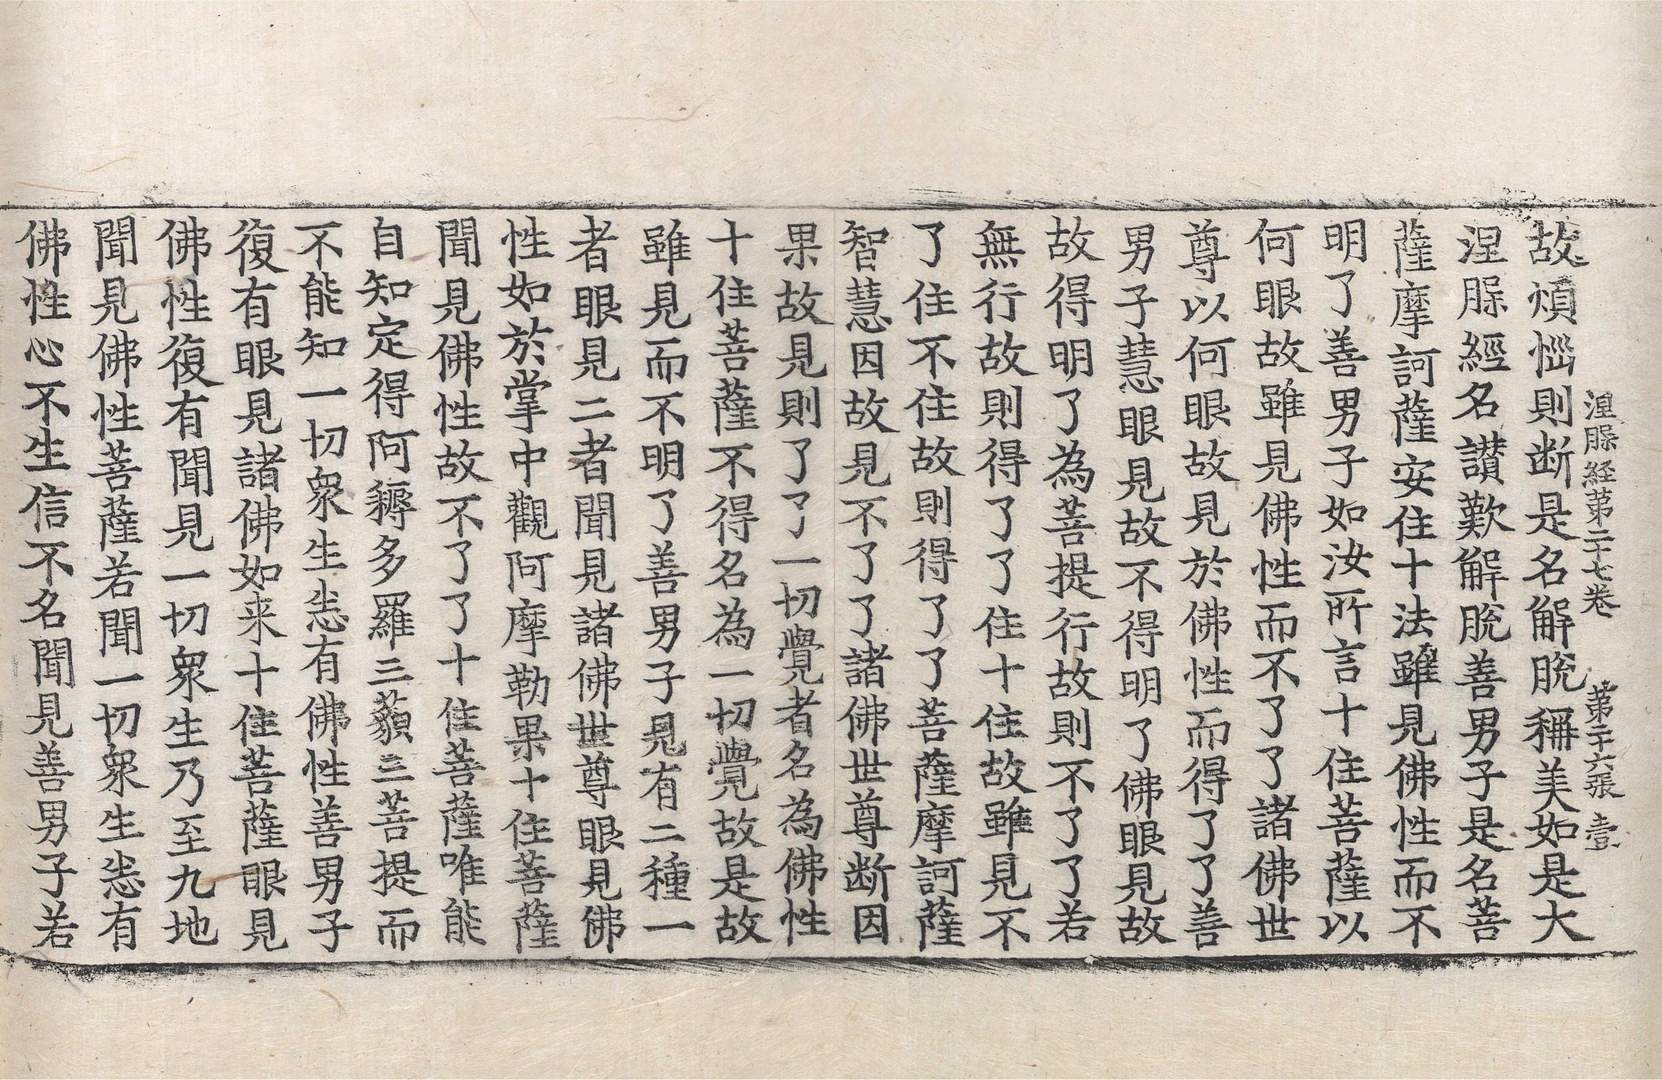 涅槃経苐二十七卷 苐二十六張 壹
故煩惱則断是名解脫稱美如是大
涅槃經名讃歎解脫善男子是名菩
薩摩訶薩安住十法雖見佛性而不
明了善男子如汝所言十住菩薩以
何眼故雖見佛性而不了了諸佛世
尊以何眼故見於佛性而得了了善
男子慧眼見故不得明了佛眼見故
故得明了為菩提行故則不了了若
無行故則得了了住十住故雖見不
了住不住故則得了了菩薩摩訶薩
智慧因故見不了了諸佛世尊断因
果故見則了了一切覺者名為佛性
十住菩薩不得名為一切覺故是故
雖見而不明了善男子見有二種一
者眼見二者聞見諸佛世尊眼見佛
性如於掌中觀阿摩勒果十住菩薩
聞見佛性故不了了十住菩薩唯能
自知定得阿耨多羅三藐三菩提而
不能知一切衆生悉有佛性善男子
復有眼見諸佛如来十住菩薩眼見
佛性復有聞見一切衆生乃至九地
聞見佛性菩薩若聞一切衆生悉有
佛性心不生信不名聞見善男子若